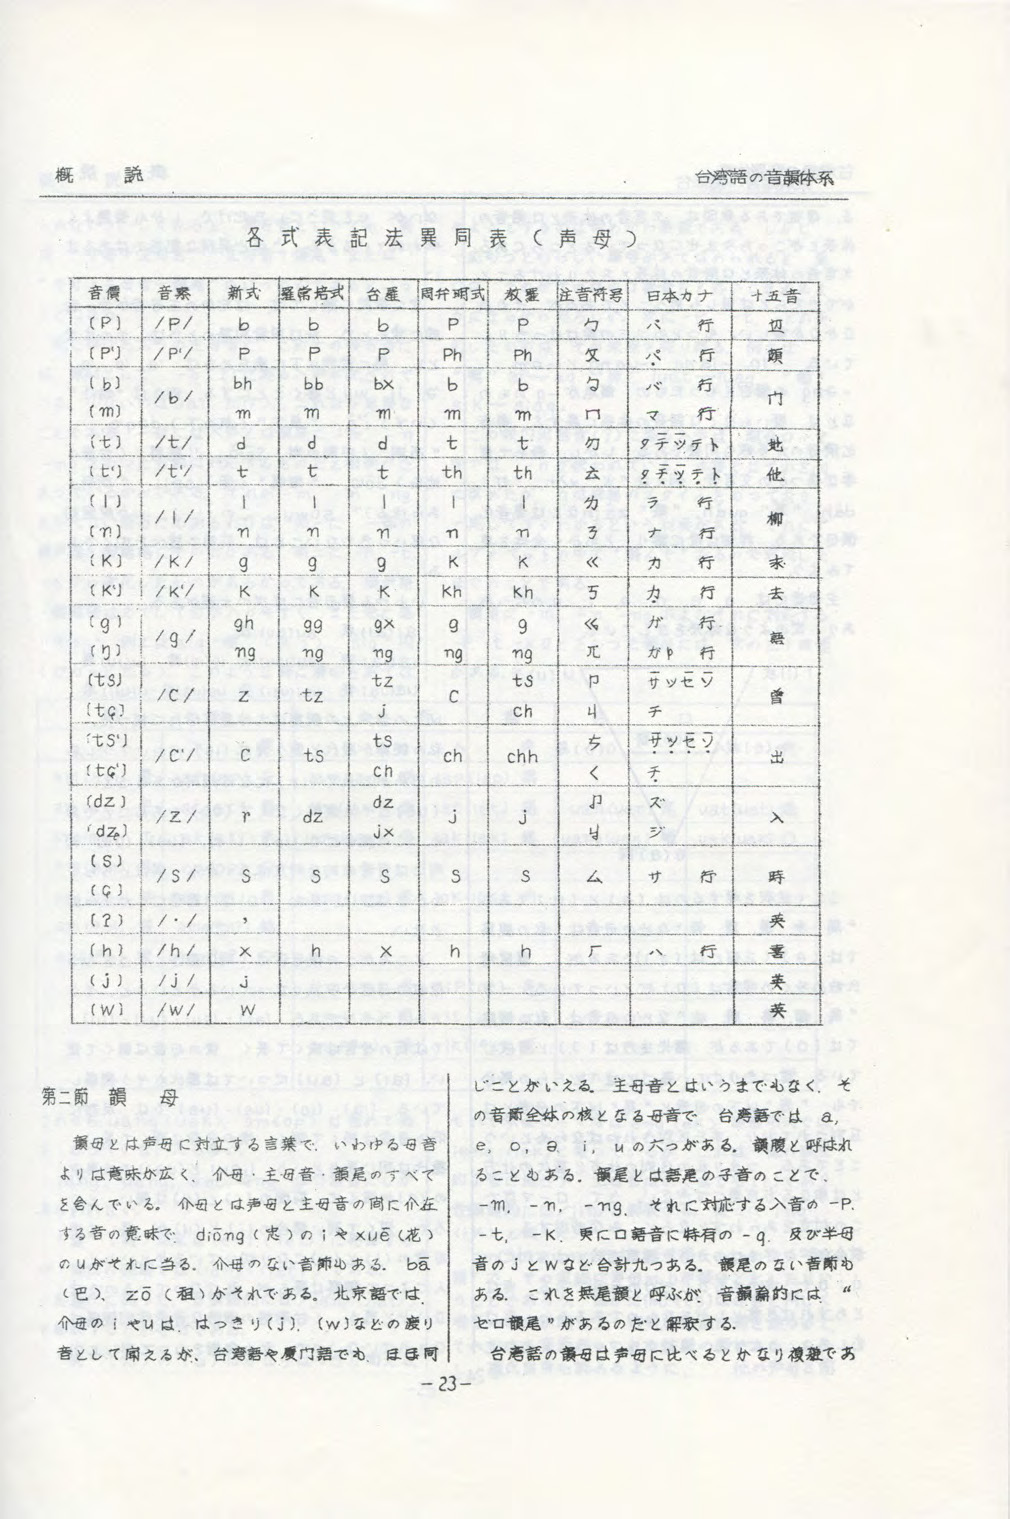 概　説　　　台湾語の音韻体系
各式表記法異同表（声母）
音價 音素 新式 羅常培式 台羅 周弁明式 教羅 注音符号 日本カナ 十五音
〔P〕 /P/ b b b P P ㄅ パ行 辺
〔P'〕 /P'/ P P P Ph Ph ㄆ パ行 頗
〔b〕 /b/ bh bb bx b b バ行 门
〔m〕 m m m m m ㄇ マ行
〔t〕 /t/ d d d t t ㄉ タテツテト 地
〔t'〕 /t'/ t t t th th ㄊ タチツテト 他
〔l〕 /l/ l l l l l ㄌ ラ行 柳
〔n〕 n n n n n ㄋ ナ行
〔K〕 /K/ g g g K K ㄍ カ行 求
〔K'〕 /K'/ K K K Kh Kh ㄎ カ行 去
〔g〕 /g/ gh gg gx g g ガ行 語
〔ŋ〕 ng ng ng ng ng ㄫ ガP行
〔ts〕 /C/ z tz tz C ts ㄗ サツセソ 曾
〔tɕ〕 j ch ㄐ チ
〔ts'〕 /C'/ C ts ts ch chh ㄘ サツセソ 出
〔tɕ'〕 ch ㄑ チ
〔dz〕 /Z/ r dz dz j j ズ 入
〔dʑ〕 jx ジ
〔S〕 /S/ S S S S S ㄙ サ行 時
〔ɕ〕
〔ʔ〕 /・/ ' 英
〔h〕 /h/ x h x h h ㄏ ハ行 喜
〔j〕 /j/ j 英
〔W〕 /W/ W 英
第二節　韻　母
韻母とは声母に対立する言葉で、いわゆる母音
よりは意味が広く、介母・主母音・韻尾のすべて
を含んでいる。介母とは声母と主母音の間に介在
する音の意味で、diōng（忠）のiやxuē（花）
のuがそれに当る。介母のない音節もある。bā
（巴）、zō（租）がそれである。北京語では、
介母のiやuは、はっきり〔j〕、〔w〕などの渡り
音として聞えるが、台湾語や厦門語でも、ほほ同
じことがいえる。主母音とはいうまでもなく、そ
の音節全体の核となる母音で、台湾語では a,
e, o, ə, i, uの六つがある。韻腹と呼ばれ
ることもある。韻尾とは語尾の子音のことで、
-m, -n, -ng、それに対応する入音の -P.
-t, -K. 更に口語音に特有の -q. 及び半母
音のjとwなど合計九つある。韻尾のない音節も
ある。これを無尾韻と呼ぶが、音韻論的には、“
ゼロ韻尾”があるのだと解釈する。
台湾語の韻母は声母に比べるとかなり複雑であ
－23－